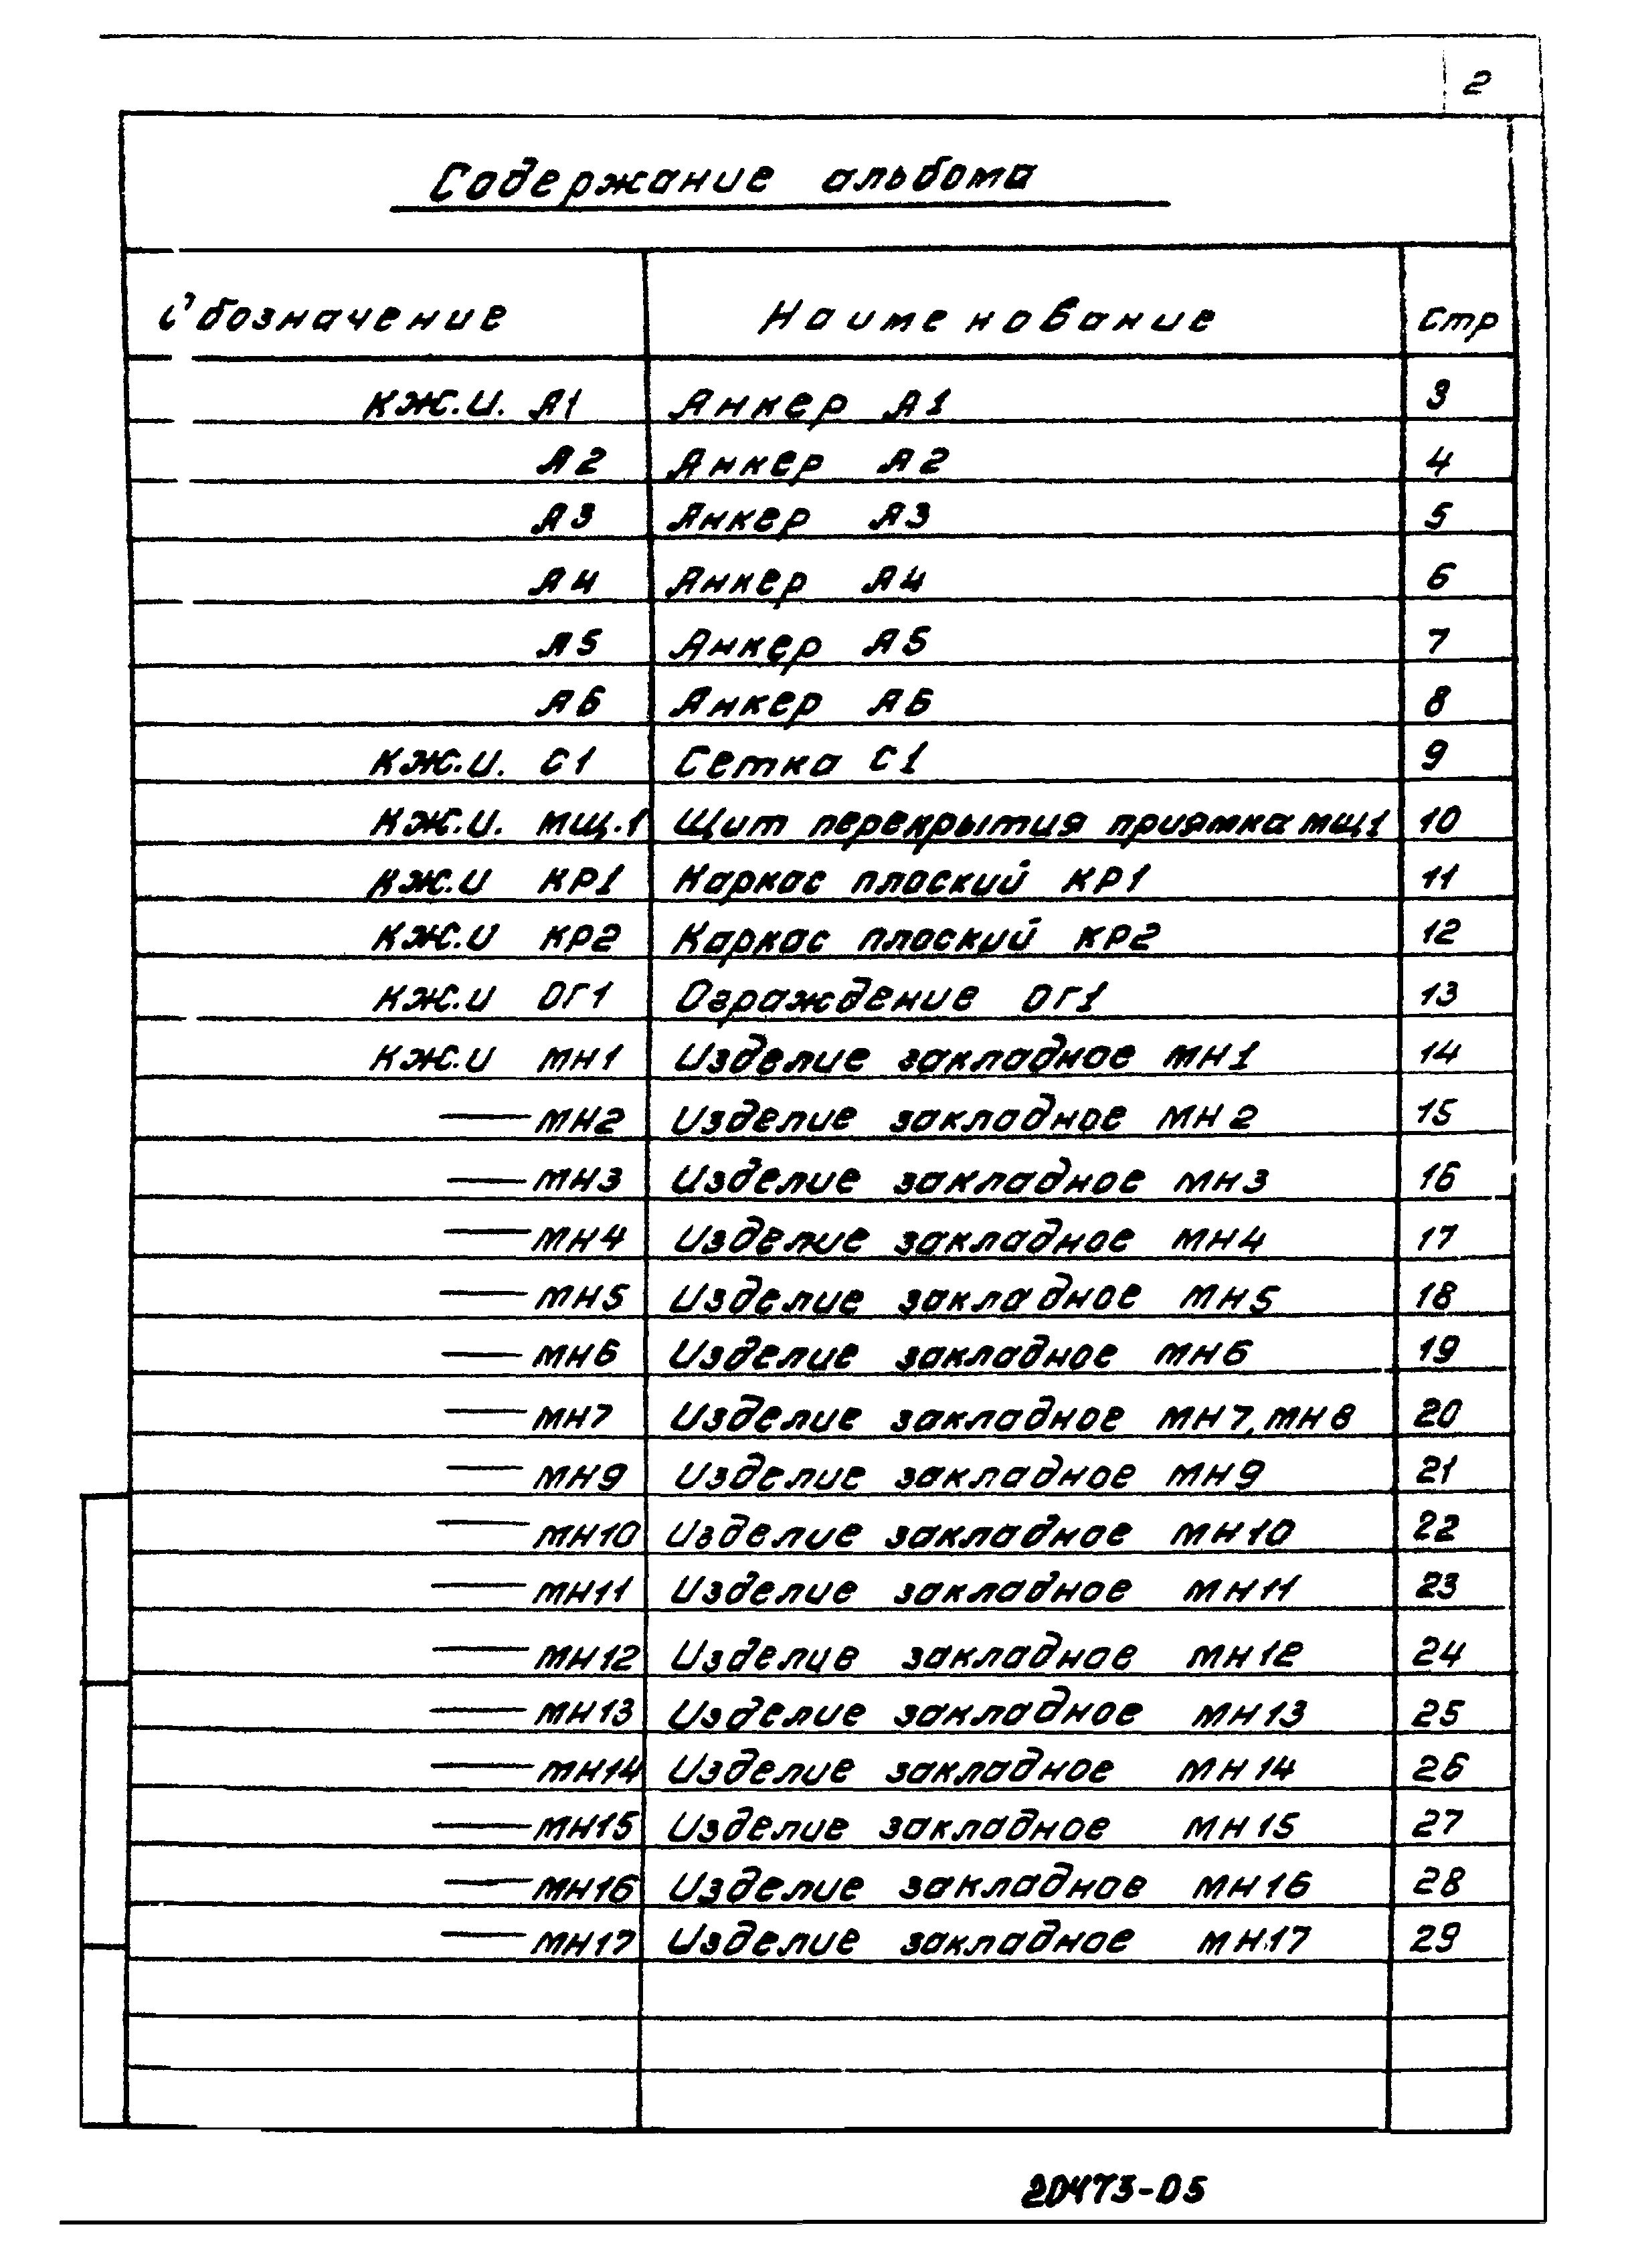 2
Содержание альбома
Обозначение Наименование Стр
КЖ.И. А1 Анкер А1 3
А2 Анкер А2 4
А3 Анкер А3 5
А4 Анкер А4 6
А5 Анкер А5 7
А6 Анкер А6 8
КЖ.И. С1 Сетка С1 9
КЖ.И. МЩ.1 Щит перекрытия приямка МЩ1 10
КЖ.И КР1 Каркас плоский КР1 11
КЖ.И КР2 Каркас плоский КР2 12
КЖ.И ОГ1 Ограждение ОГ1 13
КЖ.И МН1 Изделие закладное МН1 14
— МН2 Изделие закладное МН2 15
— МН3 Изделие закладное МН3 16
— МН4 Изделие закладное МН4 17
— МН5 Изделие закладное МН5 18
— МН6 Изделие закладное МН6 19
— МН7 Изделие закладное МН7, МН8 20
— МН9 Изделие закладное МН9 21
— МН10 Изделие закладное МН10 22
— МН11 Изделие закладное МН11 23
— МН12 Изделие закладное МН12 24
— МН13 Изделие закладное МН13 25
— МН14 Изделие закладное МН14 26
— МН15 Изделие закладное МН15 27
— МН16 Изделие закладное МН16 28
— МН17 Изделие закладное МН17 29
20473-05